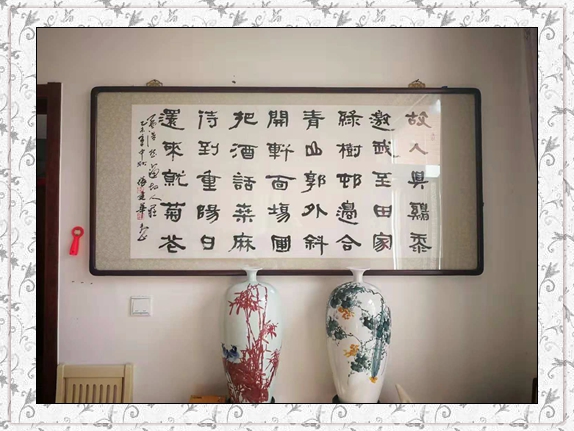 故人具鷄黍
邀我至田家
綠樹邨邊合
青山郭外斜
開軒面場圃
把酒話桑麻
待到重陽日
還來就菊花
孟浩然過故人莊